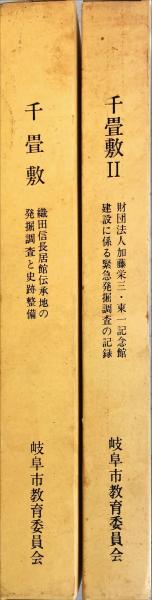 千畳敷
織田信長居館伝承地の
発掘調査と史跡整備
岐阜市教育委員会
千畳敷II
財団法人加藤栄三・東一記念館
建設に係る緊急発掘調査の記録
岐阜市教育委員会